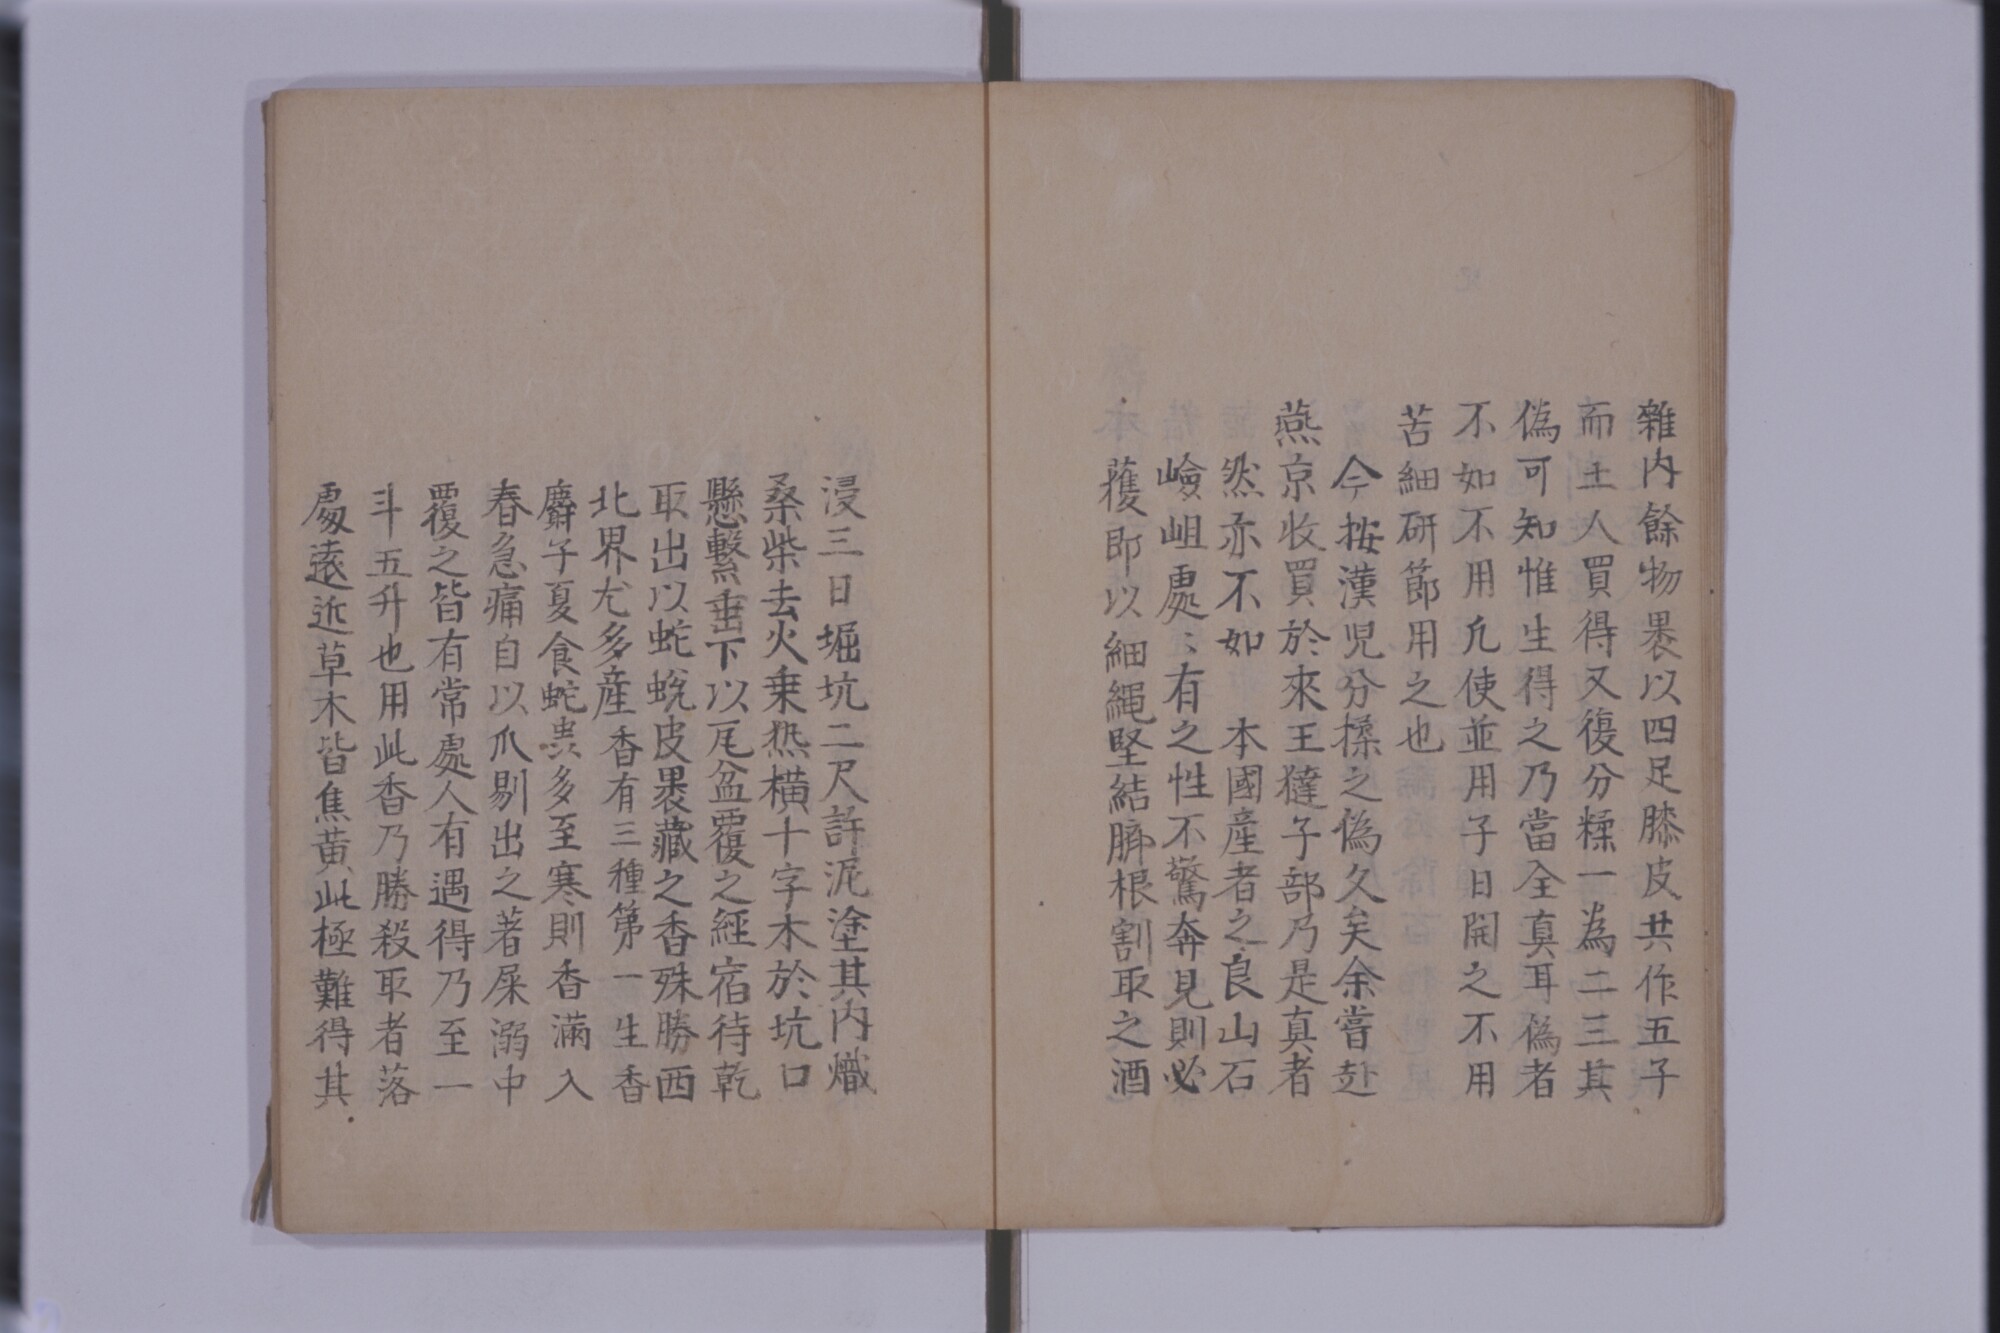 雜內餘物裹以四足膝皮共作五子
而土人買得又復分糅一為二三其
偽可知惟生得之乃當全真耳偽者
不如不用凡使並用子日開之不用
苦細研節用之也
今按漢児分搡之偽久矣余嘗赴
燕京收買於來王㺚子部乃是真者
然亦不如　本國產者之良山石
嶮岨處〻有之性不驚奔見則必
獲即以細繩堅結臍根割取之酒
浸三日堀坑二尺許泥塗其內熾
桑柴去火乗热橫十字木於坑口
懸繫垂下以瓦盆覆之經宿待乾
取出以蛇蛻皮裹藏之香殊勝西
北界尤多產香有三種第一生香
麝子夏食蛇䖝多至寒則香滿入
春急痛自以爪剔出之著屎溺中
覆之皆有常處人有遇得乃至一
斗五升也用此香乃勝殺取者落
處遠近草木皆焦黃此極難得其